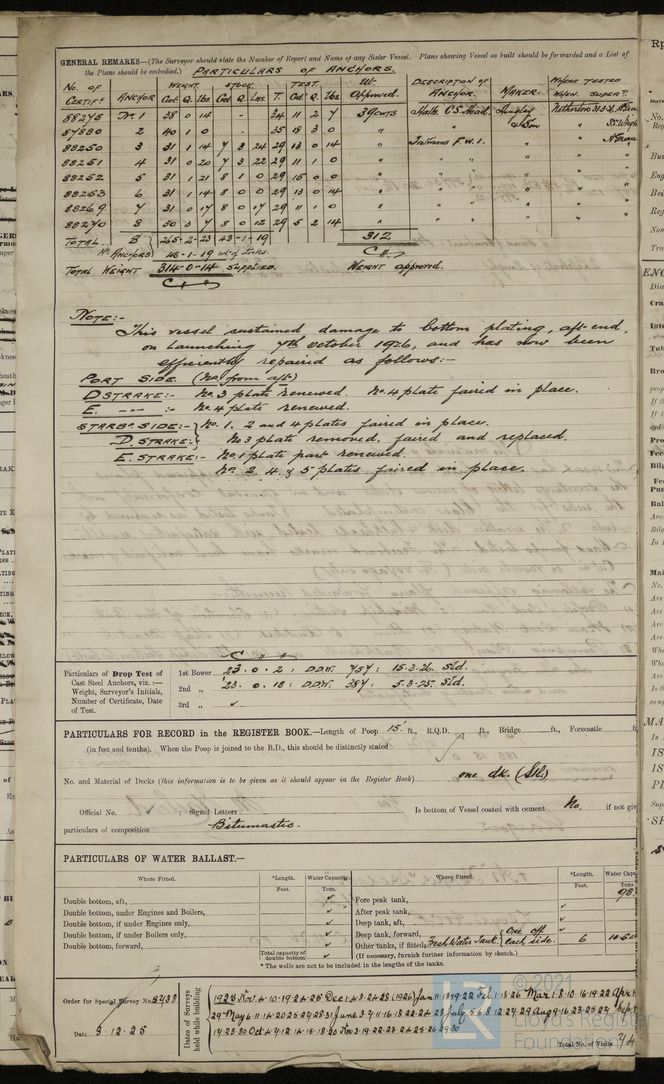 GENERAL REMARKS—(The Surveyor should state the Number of Report and Name of any Sister Vessel. Plans showing Vessel as built should be forwarded and a List of
the Plans should be embodied.) PARTICULARS OF ANCHORS.
No. OF CERTIFte ANCHOR WEIGHT. Cwt. Q. Lbs STOCK. Cwt. Q. Lbs. TEST. T. Cwt. Q. Lbs. Wt. Approved. DESCRIPTION OF ANCHOR. MAKER. WHERE TESTED WHEN. SUPERt.
88275 No. 1 38 0 14 34 11 2 7 39 cwts Stalk C.S. Head.
87880 2 40 1 0 - 35 18 3 0 "
88250 3 31 1 14 7 3 24 29 13 0 14 " Trotmans F.W.I.
88251 4 31 0 20 7 3 22 29 11 1 0 " " "
88252 5 31 1 21 8 1 0 29 15 0 0 " " "
88253 6 31 1 14 8 0 0 29 13 0 14 " " "
88269 7 31 0 17 8 0 17 29 11 1 0 " " "
88270 8 30 3 7 8 0 12 29 5 2 14 " " "
TOTAL 8 265-2-23 43-1-19 312
No. ANCHORS 48-1-19 wt of stocks.
TOTAL WEIGHT 314-0-14 SUPPLIED. WEIGHT approved.
NOTE:-
This vessel sustained damage to bottom plating, aft-end,
on launching 7th October 1926, and has now been
efficiently repaired as follows:-
PORT SIDE (No. from aft)
D STRAKE:- No. 3 plate renewed. No. 4 plate faired in place.
E. -"- :- No. 4 plate renewed.
STARBd. SIDE:- No. 1. 2 and 4 plates faired in place.
D. STRAKE:- No 3 plate removed, faired and replaced.
E. STRAKE:- No. 1 plate part renewed.
No. 2 4. & 5 plates faired in place.
Particulars of Drop Test of
Cast Steel Anchors, viz.:—
Weight, Surveyor's Initials,
Number of Certificate, Date
of Test.
1st Bower 23. 0. 2 : D.D.W. 757 : 15.3.26. Sld.
2nd „ 23. 0. 18 : D.D.W. 387 : 5.3.25. Sld.
3rd „
PARTICULARS FOR RECORD in the REGISTER BOOK.—Length of Poop 15 ft., R.Q.D. ft., Bridge ft., Forecastle ft.
(in feet and tenths). When the Poop is joined to the B.D., this should be distinctly stated
No. and Material of Decks (this information is to be given as it should appear in the Register Book) one dk. (Stl.)
Official No. ; Signal Letters Is bottom of Vessel coated with cement No. if not giv
particulars of composition Bitumastic.
PARTICULARS OF WATER BALLAST.—
Where Fitted. *Length. Feet. Water Capacity. Tons. Where Fitted. *Length. Feet. Water Capa Tons
Double bottom, aft, Fore peak tank, 98
Double bottom, under Engines and Boilers, After peak tank,
Double bottom, if under Engines only, Deep tank, aft,
Double bottom, if under Boilers only, Deep tank, forward,
Double bottom, forward, Other tanks, if fitted, Fresh Water Tank. {One off each side. 6
Total capacity of double bottom (If necessary, furnish further information by sketch.)
* The wells are not to be included in the lengths of the tanks.
Order for Special Survey No. 5438
Date 3.12.25
Dates of Surveys held while building
Total No. of Visits 74
© 2021
LR
Lloyd's Register
Foundation